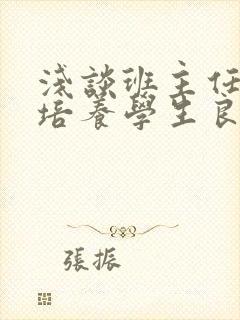 淺談班主任
培養學生良
張振